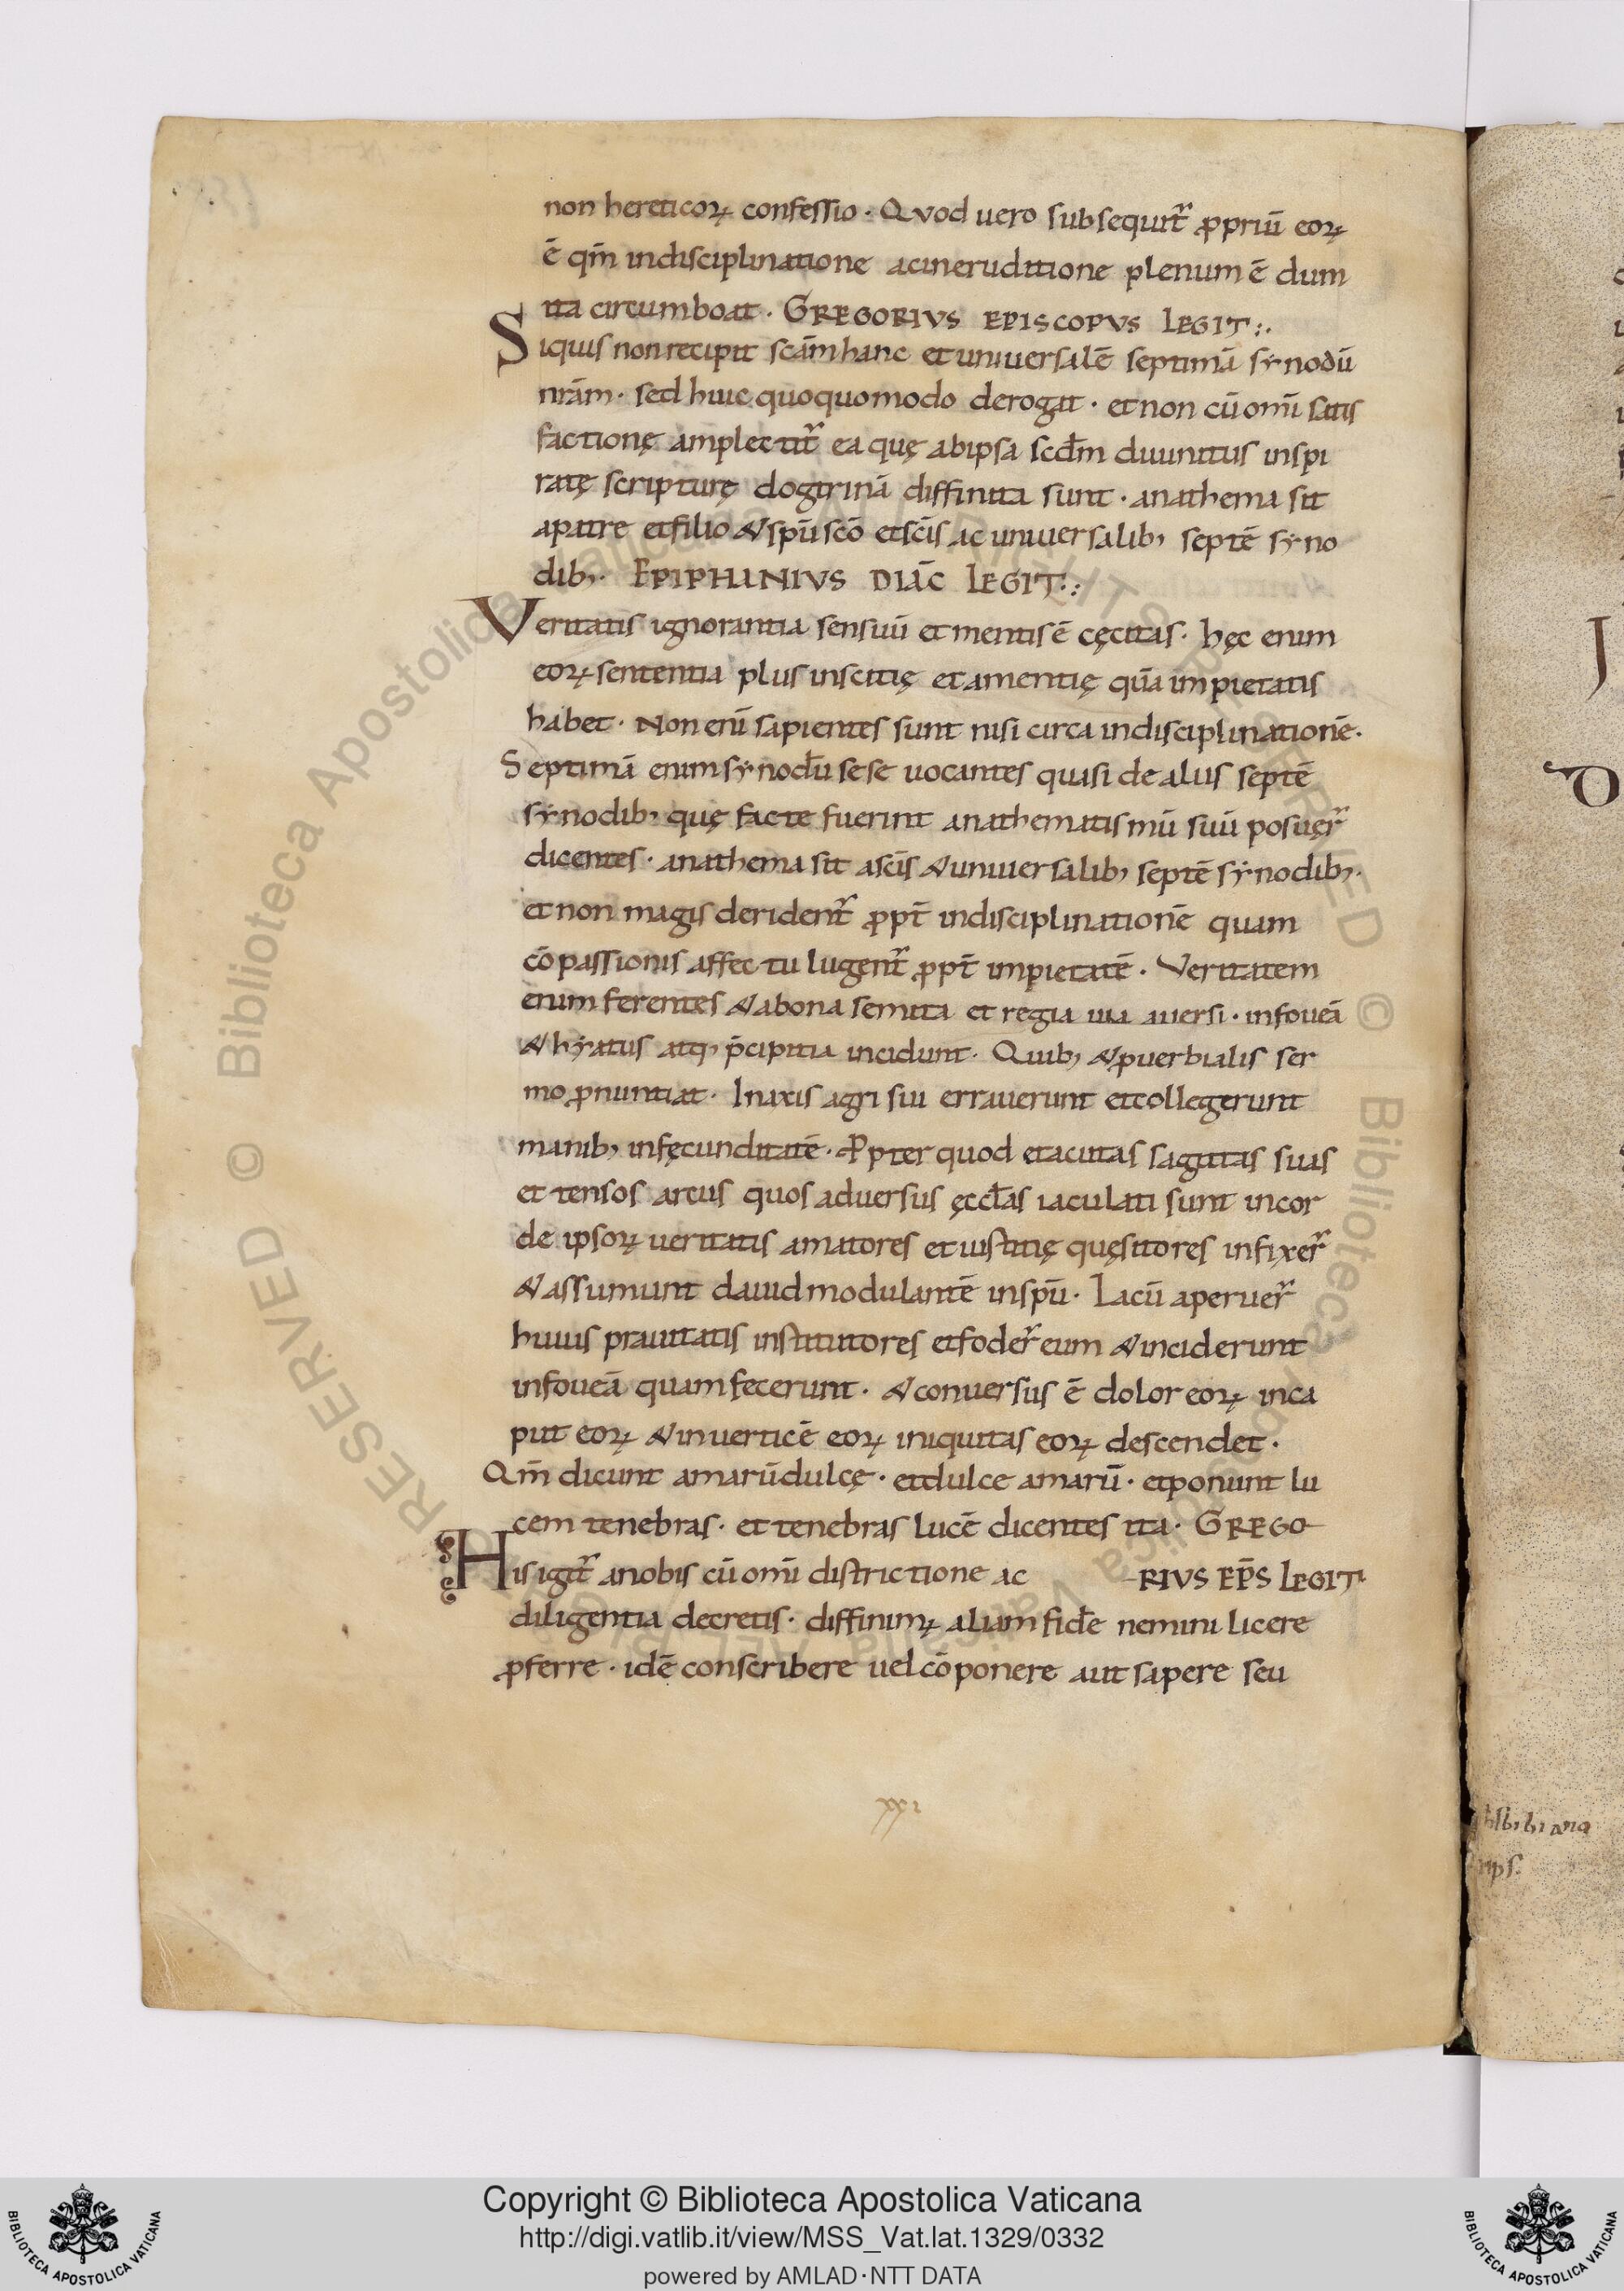 non hereticoꝝ confessio · Qvod uero subsequit᷑ ꝓpriū eoꝝ
ē qm̄ indisciplinatione acineruditione plenum ē dum
ita circumboat · GREGORIVS EPISCOPVS LEGIT :·
Siquis non recipit scām hanc et uniuersalē septimā synodū
nr̄am · sed huic quoquomodo derogat · et non cū omī satis
factionę amplectit᷑ ea quę abipsa scd̄m diuinitus inspi
ratę scripturę dogtrinā diffinita sunt · anathema sit
apatre et filio & spū scō et scīs ac uniuersalib; septē syno
dib; · EPIPHANIVS DIĀC LEGIT :·
Veritatis ignorantia sensuū et mentis ē cęcitas · hęc enim
eoꝝ sententia plus inscitię et amentię quā impietatis
habet · Non enī sapientes sunt nisi circa indisciplinationē ·
Septimā enim synodū sese uocantes quasi de aliis septē
synodib; quę facte fuerint anathematismū suū posuer᷑
dicentes · anathema sit ascīs & uniuersalib; septē synodib; ·
et non magis derident᷑ ꝓpt̄ indisciplinationē quam
cōpassionis affectu lugent᷑ ꝓpt̄ impietatē · Veritatem
enim ferentes & abona semita et regia uia auersi · infoueā
& hyatus atq; p̄cipitia incidunt · Quib; & ꝓuerbialis ser
mo ꝓnuntiat · Inaxis agri sui errauerunt et collegerunt
manib; infęcunditatē · Ꝓpter quod et acutas sagittas suas
et tensos arcus quos aduersus ęccl̄as iaculati sunt incor
de ipsoꝝ ueritatis amatores et iustitię quęsitores infixer᷑
& assumunt dauid modulantē inspū · Lacū aperuer᷑
huius prauitatis institutores et foder᷑ eum & inciderunt
infoueā quam fecerunt · & conuersus ē dolor eoꝝ inca
put eoꝝ & inuerticē eoꝝ iniquitas eoꝝ descendet ·
Qm̄ dicunt amarū dulcę · et dulce amarū · et ponunt lu
cem tenebras · et tenebras lucē dicentes ita · GREGO
His igit᷑ anobis cū omī districtione ac RIVS EP̄S LEGIT
diligentia decretis · diffinimꝝ aliam fidē nemini licere
ꝓferre · idē conscribere uel cōponere aut sapere seu
xxi
Copyright © Biblioteca Apostolica Vaticana
http://digi.vatlib.it/view/MSS_Vat.lat.1329/0332
powered by AMLAD·NTT DATA
BIBLIOTECA APOSTOLICA VATICANA
BIBLIOTECA APOSTOLICA VATICANA